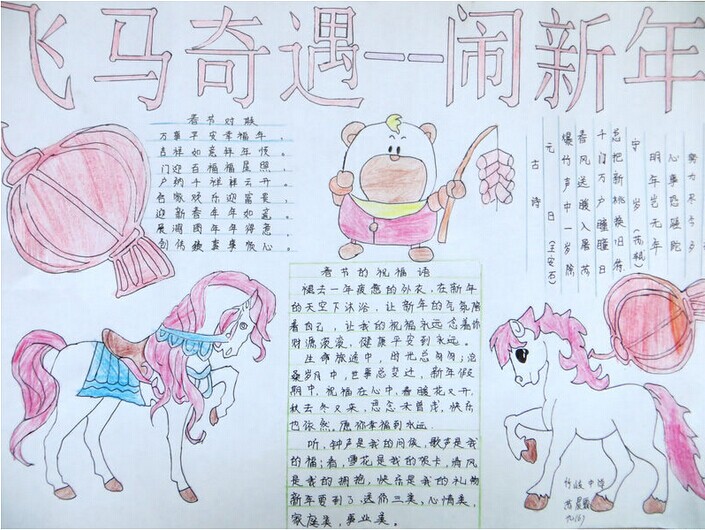 飞马奇遇——闹新年
春节对联
万事平安幸福年,
吉祥如意祥年
门迎百福福星照,
户纳千祥祥云开。
家欢乐迎富贵,
迎新春年年如意
年年得意
创伟业事事
古诗
元日(王安石)
爆竹声中一岁除
春风送暖入屠苏
千门万户瞳瞳日
总把新桃换旧符
守岁(苏轼)
明年岂无年
心事恐蹉跎
努力尽今夕
春节的祝福语
褪去一年疲惫的外衣,在新年
的天空下沐浴,让新年的气氛
着自己,让我的祝福永远恋着你
财源滚滚,健康平安到永远。
生命旅途中,时光总匆匆;沧
桑岁月中,世事总变迁,新年假
期中,祝福在心中,春暖花又开,
秋去冬又来,思念未曾老,快乐
也依然,愿你幸福到永远。
听,钟声是我的问候,歌声是我
的福;看,雪花是我的贺卡,清风
是我的拥抱,快乐是我的礼物
新年要到了,送你三类,心情类,
家庭类,事业类。